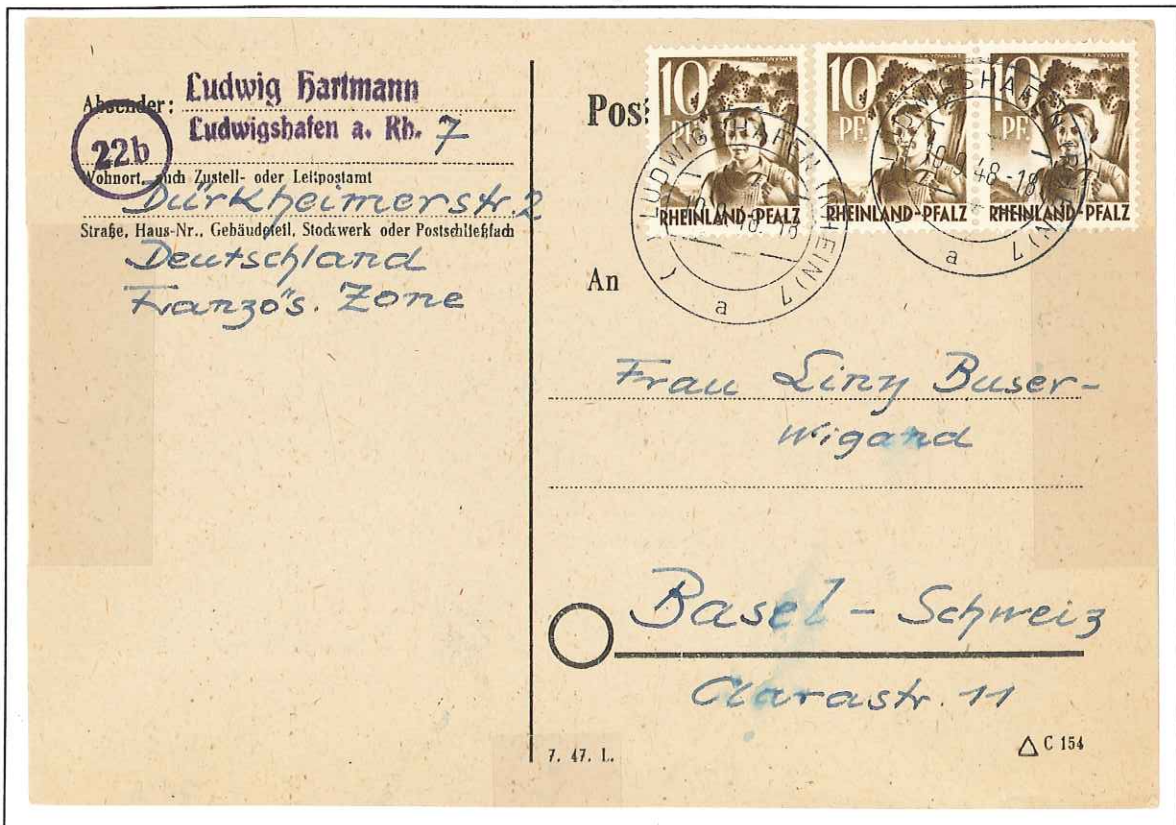 Absender: Ludwig Hartmann
Ludwigshafen a. Rh. 7
22b
Wohnort, auch Zustell- oder Leitpostamt
Dürkheimerstr. 2
Straße, Haus-Nr., Gebäudeteil, Stockwerk oder Postschließfach
Deutschland
Französ. Zone
10 PF.
RHEINLAND-PFALZ
10 PF.
RHEINLAND-PFALZ
10 PF.
RHEINLAND-PFALZ
LUDWIGSHAFEN (RHEIN) 7
a
LUDWIGSHAFEN (RHEIN) 7
10.9.48.-18
a
An
Frau Liny Buser-
Wigand
Basel - Schweiz
Clarastr. 11
7. 47. L.
C 154